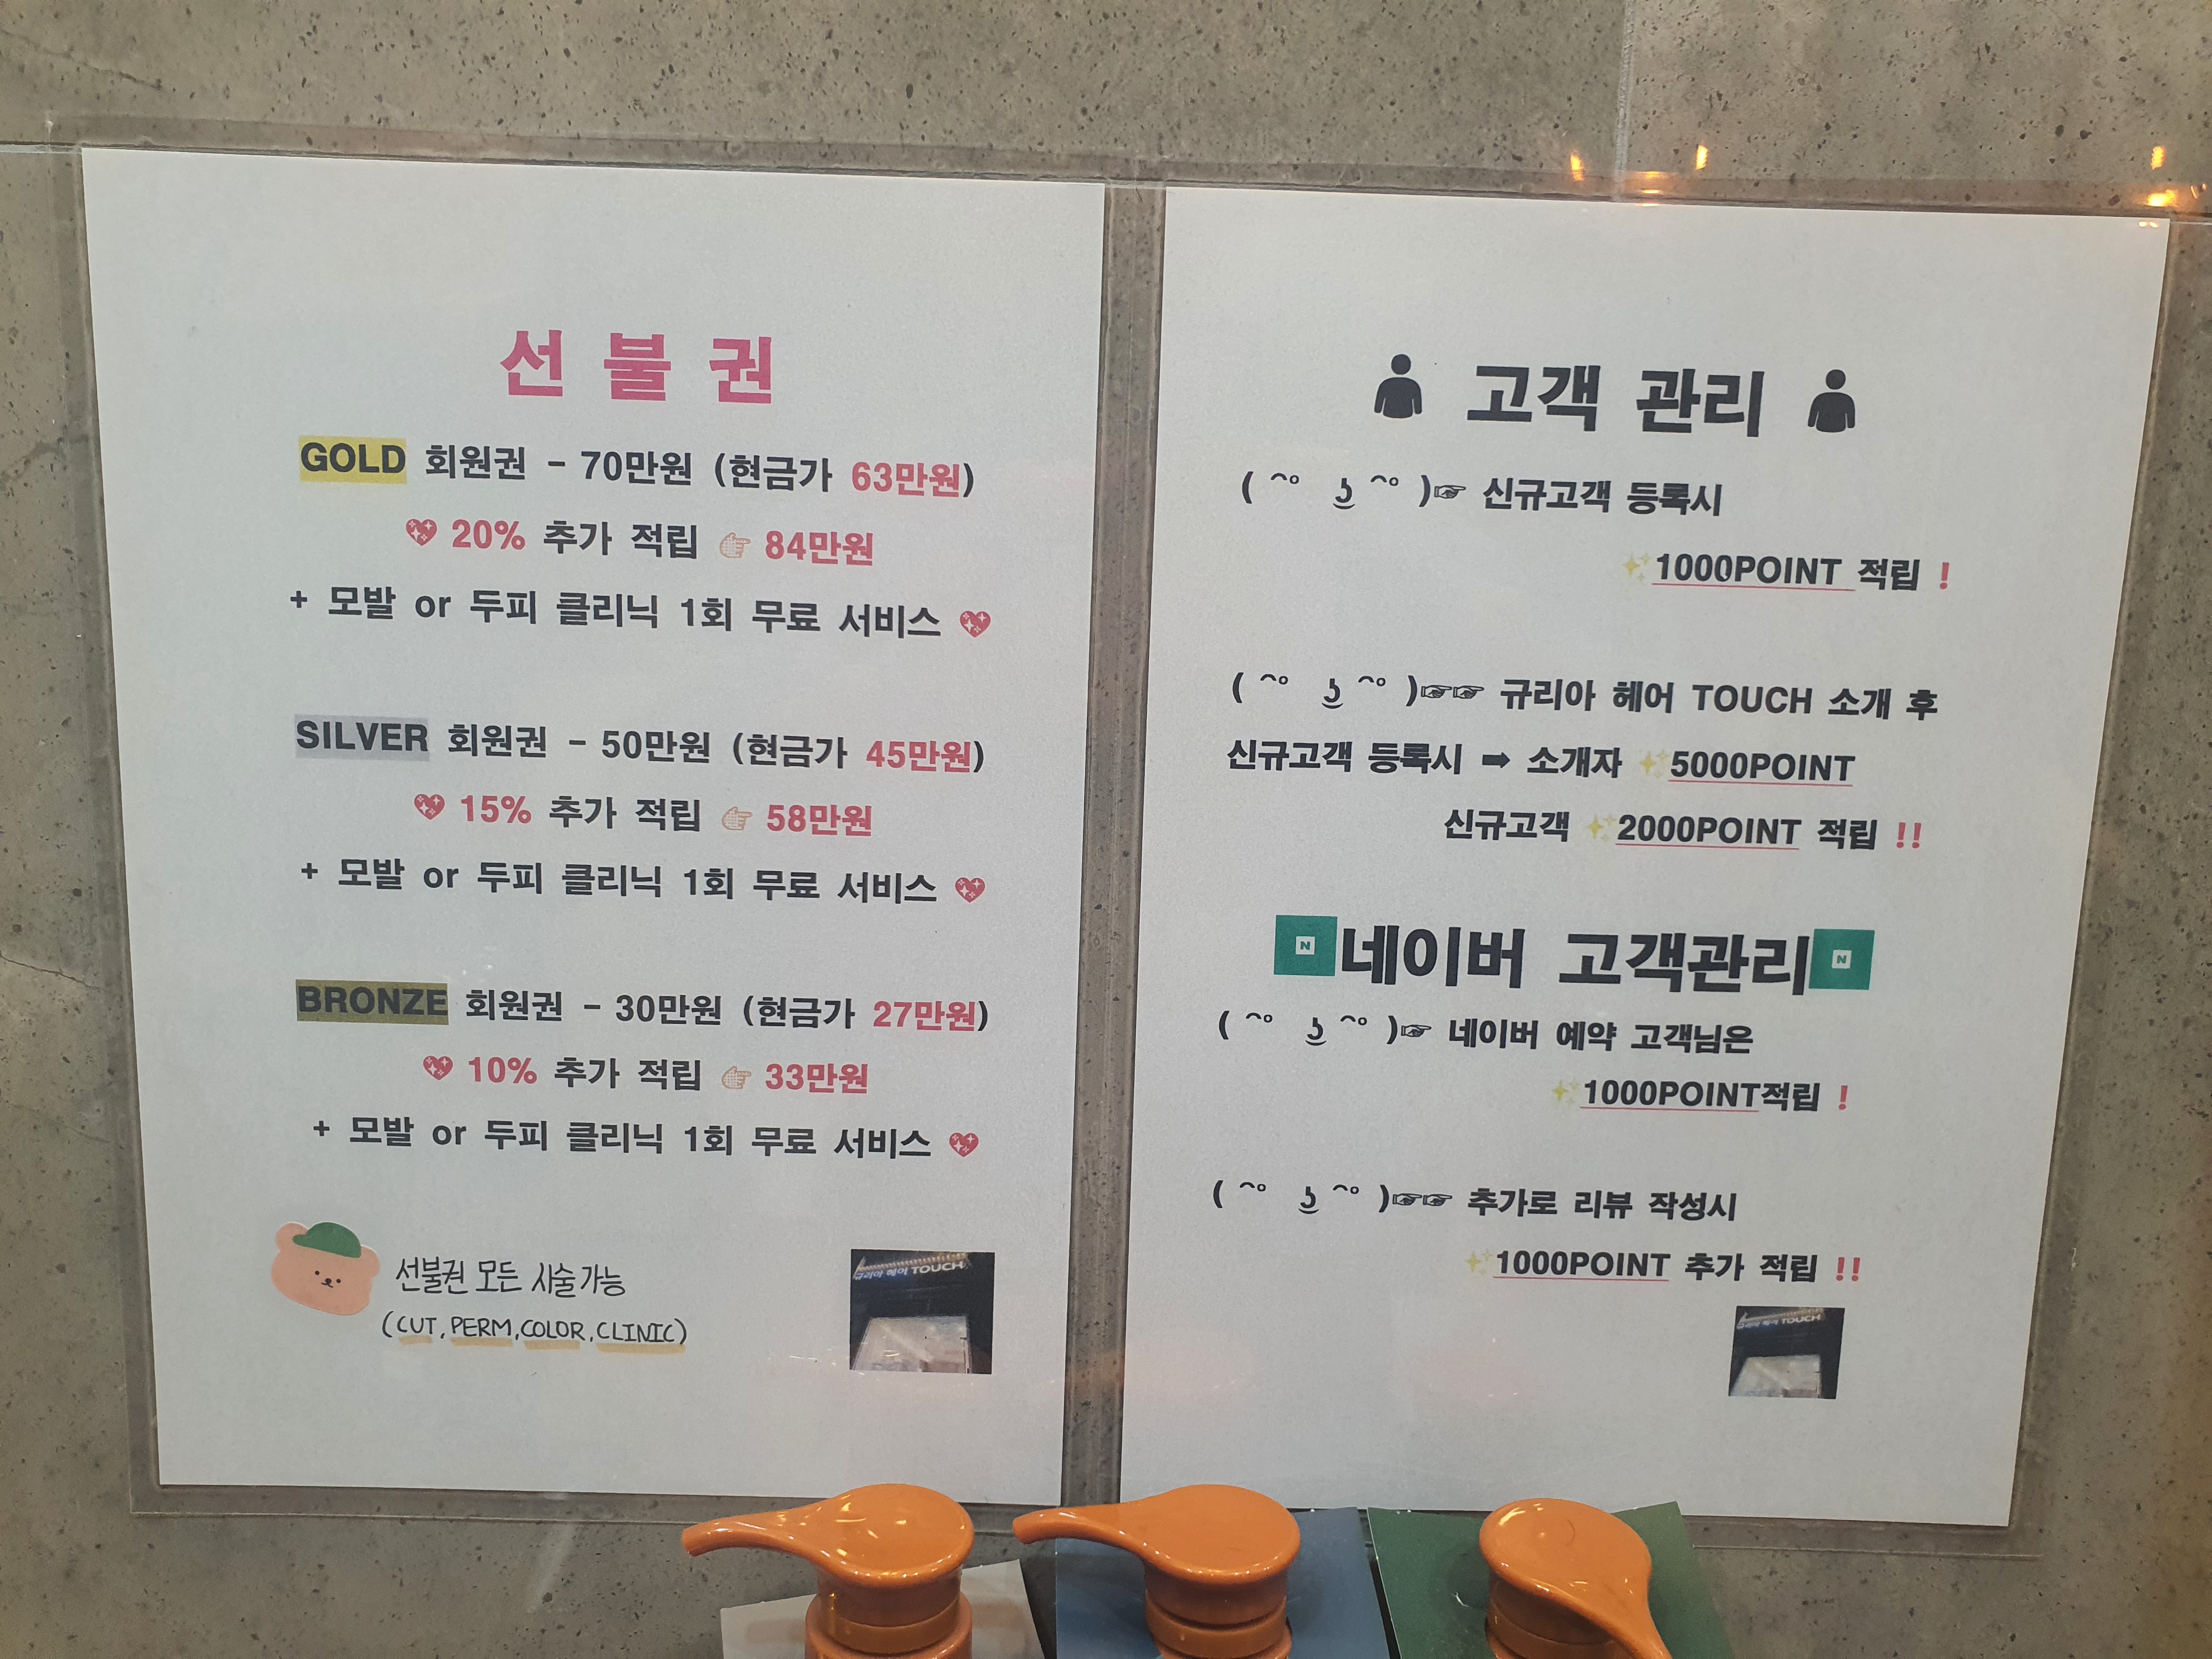 선 불 권
GOLD 회원권 - 70만원 (현금가 63만원)
💖 20% 추가 적립 👉 84만원
+ 모발 or 두피 클리닉 1회 무료 서비스 💖
SILVER 회원권 - 50만원 (현금가 45만원)
💖 15% 추가 적립 👉 58만원
+ 모발 or 두피 클리닉 1회 무료 서비스 💖
BRONZE 회원권 - 30만원 (현금가 27만원)
💖 10% 추가 적립 👉 33만원
+ 모발 or 두피 클리닉 1회 무료 서비스 💖
선불권 모든 시술가능
(CUT, PERM, COLOR, CLINIC)
규리아 헤어 TOUCH
고객 관리
( ᵔᵒ ͜ʖ ᵔᵒ )☞ 신규고객 등록시
✨1000POINT 적립 !
( ᵔᵒ ͜ʖ ᵔᵒ )☞☞ 규리아 헤어 TOUCH 소개 후
신규고객 등록시 ➡ 소개자 ✨5000POINT
신규고객 ✨2000POINT 적립 !!
N네이버 고객관리N
( ᵔᵒ ͜ʖ ᵔᵒ )☞ 네이버 예약 고객님은
✨1000POINT적립 !
( ᵔᵒ ͜ʖ ᵔᵒ )☞☞ 추가로 리뷰 작성시
✨1000POINT 추가 적립 !!
규리아 헤어 TOUCH